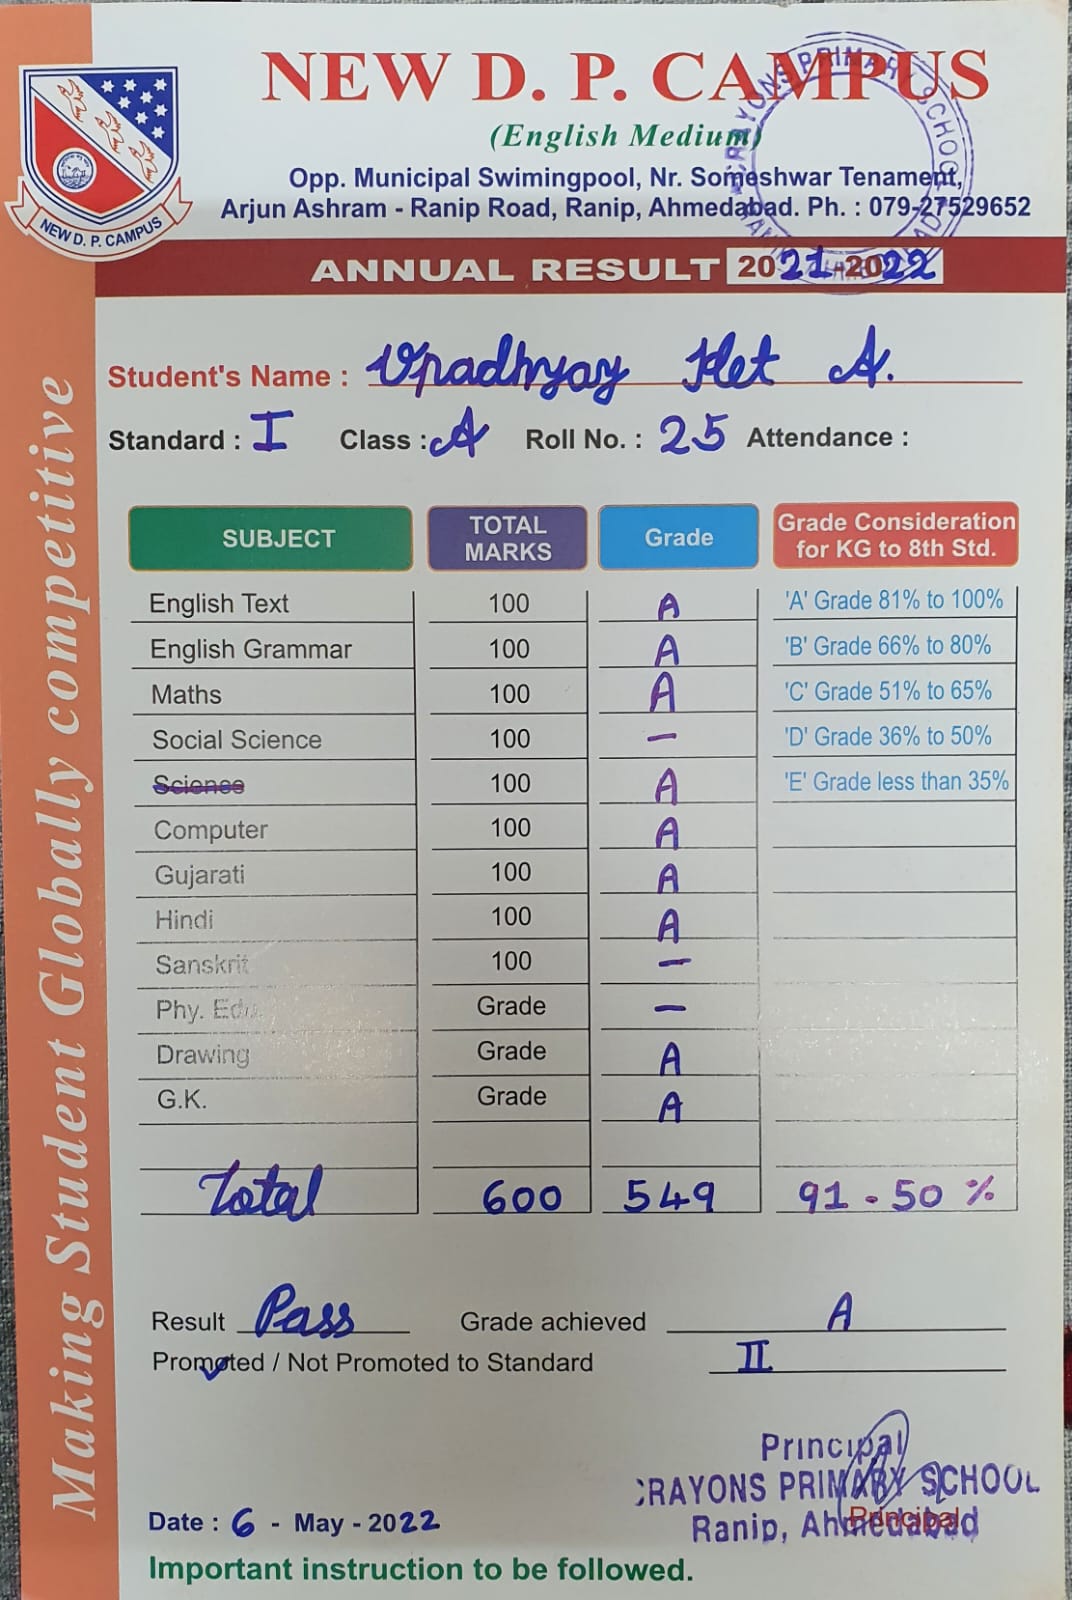 NEW D. P. CAMPUS
(English Medium)
Opp. Municipal Swimingpool, Nr. Someshwar Tenament,
Arjun Ashram - Ranip Road, Ranip, Ahmedabad. Ph. : 079-27529652
CRAYONS PRIMARY SCHOOL
NEW D. P. CAMPUS
ANNUAL RESULT 2021-2022
Making Student Globally competitive
Student's Name : Upadhyay Het A.
Standard : I Class : A Roll No. : 25 Attendance :
SUBJECT TOTAL MARKS Grade Grade Consideration for KG to 8th Std.
English Text 100 A 'A' Grade 81% to 100%
English Grammar 100 A 'B' Grade 66% to 80%
Maths 100 A 'C' Grade 51% to 65%
Social Science 100 – 'D' Grade 36% to 50%
Science 100 A 'E' Grade less than 35%
Computer 100 A
Gujarati 100 A
Hindi 100 A
Sanskrit 100 –
Phy. Edu. Grade –
Drawing Grade A
G.K. Grade A
Total 600 549 91.50 %
Result Pass Grade achieved A
Promoted / Not Promoted to Standard II
Principal
CRAYONS PRIMARY SCHOOL
Ranip, Ahmedabad
Principal
Date : 6 - May - 2022
Important instruction to be followed.